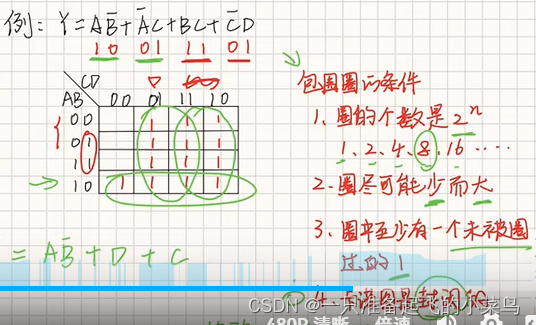 例: Y = AB̅ + A̅C + BC + C̅D
10 01 11 01
CD
AB 00 01 11 10
00 1 1 1
01 1 1 1
11 1 1 1
10 1 1 1 1
= AB̅ + D + C
包围圈的条件
1、圈的个数是 2ⁿ
1、2、4、8、16 ·····
2、圈尽可能少而大
3、圈中至少有一个未被圈
过的1
CSDN @一只准备起飞的小菜鸟
480P 清晰 倍速